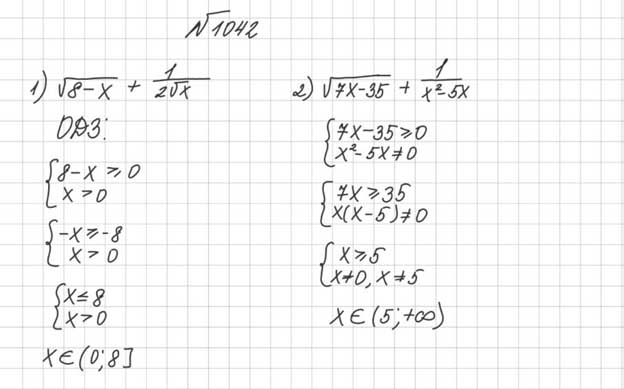 №1042
1) √8-x + 1/2√x
ОДЗ:
{8-x ≥ 0
x > 0
{-x ≥ -8
x > 0
{x ≤ 8
x > 0
x ∈ (0; 8]
2) √7x-35 + 1/x²-5x
{7x-35 ≥ 0
x²-5x ≠ 0
{7x ≥ 35
x(x-5) ≠ 0
{x ≥ 5
x ≠ 0, x ≠ 5
x ∈ (5; +∞)